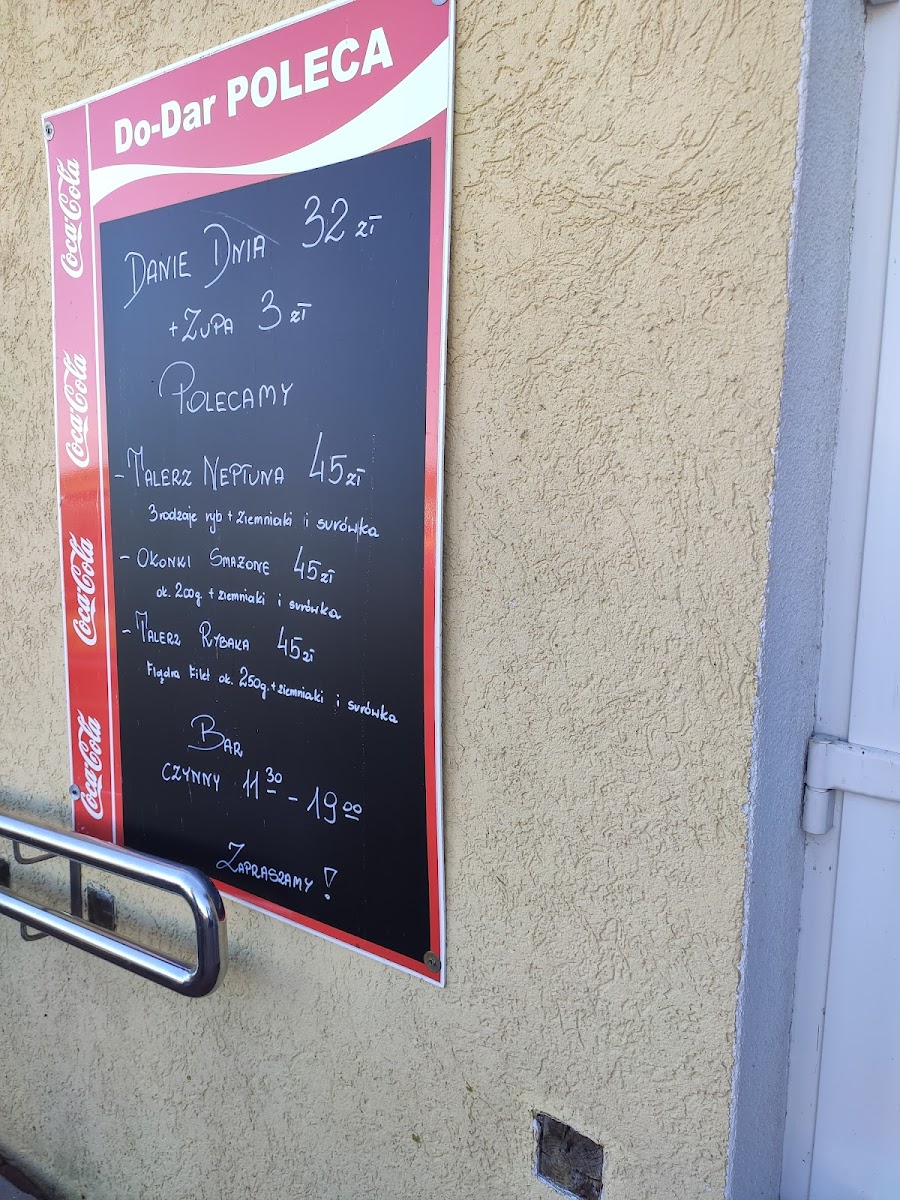 Do-Dar POLECA
Coca-Cola
Coca-Cola
Coca-Cola
Coca-Cola
DANIE DNIA 32 zł
+ ZUPA 3 zł
POLECAMY
- TALERZ NEPTUNA 45 zł
3 rodzaje ryb + ziemniaki i surówka
- OKONKI SMAŻONE 45 zł
ok. 200g. + ziemniaki i surówka
- TALERZ RYBAKA 45 zł
Flądra Filet ok. 250g. + ziemniaki i surówka
BAR
CZYNNY 11 30 - 19 00
ZAPRASZAMY !